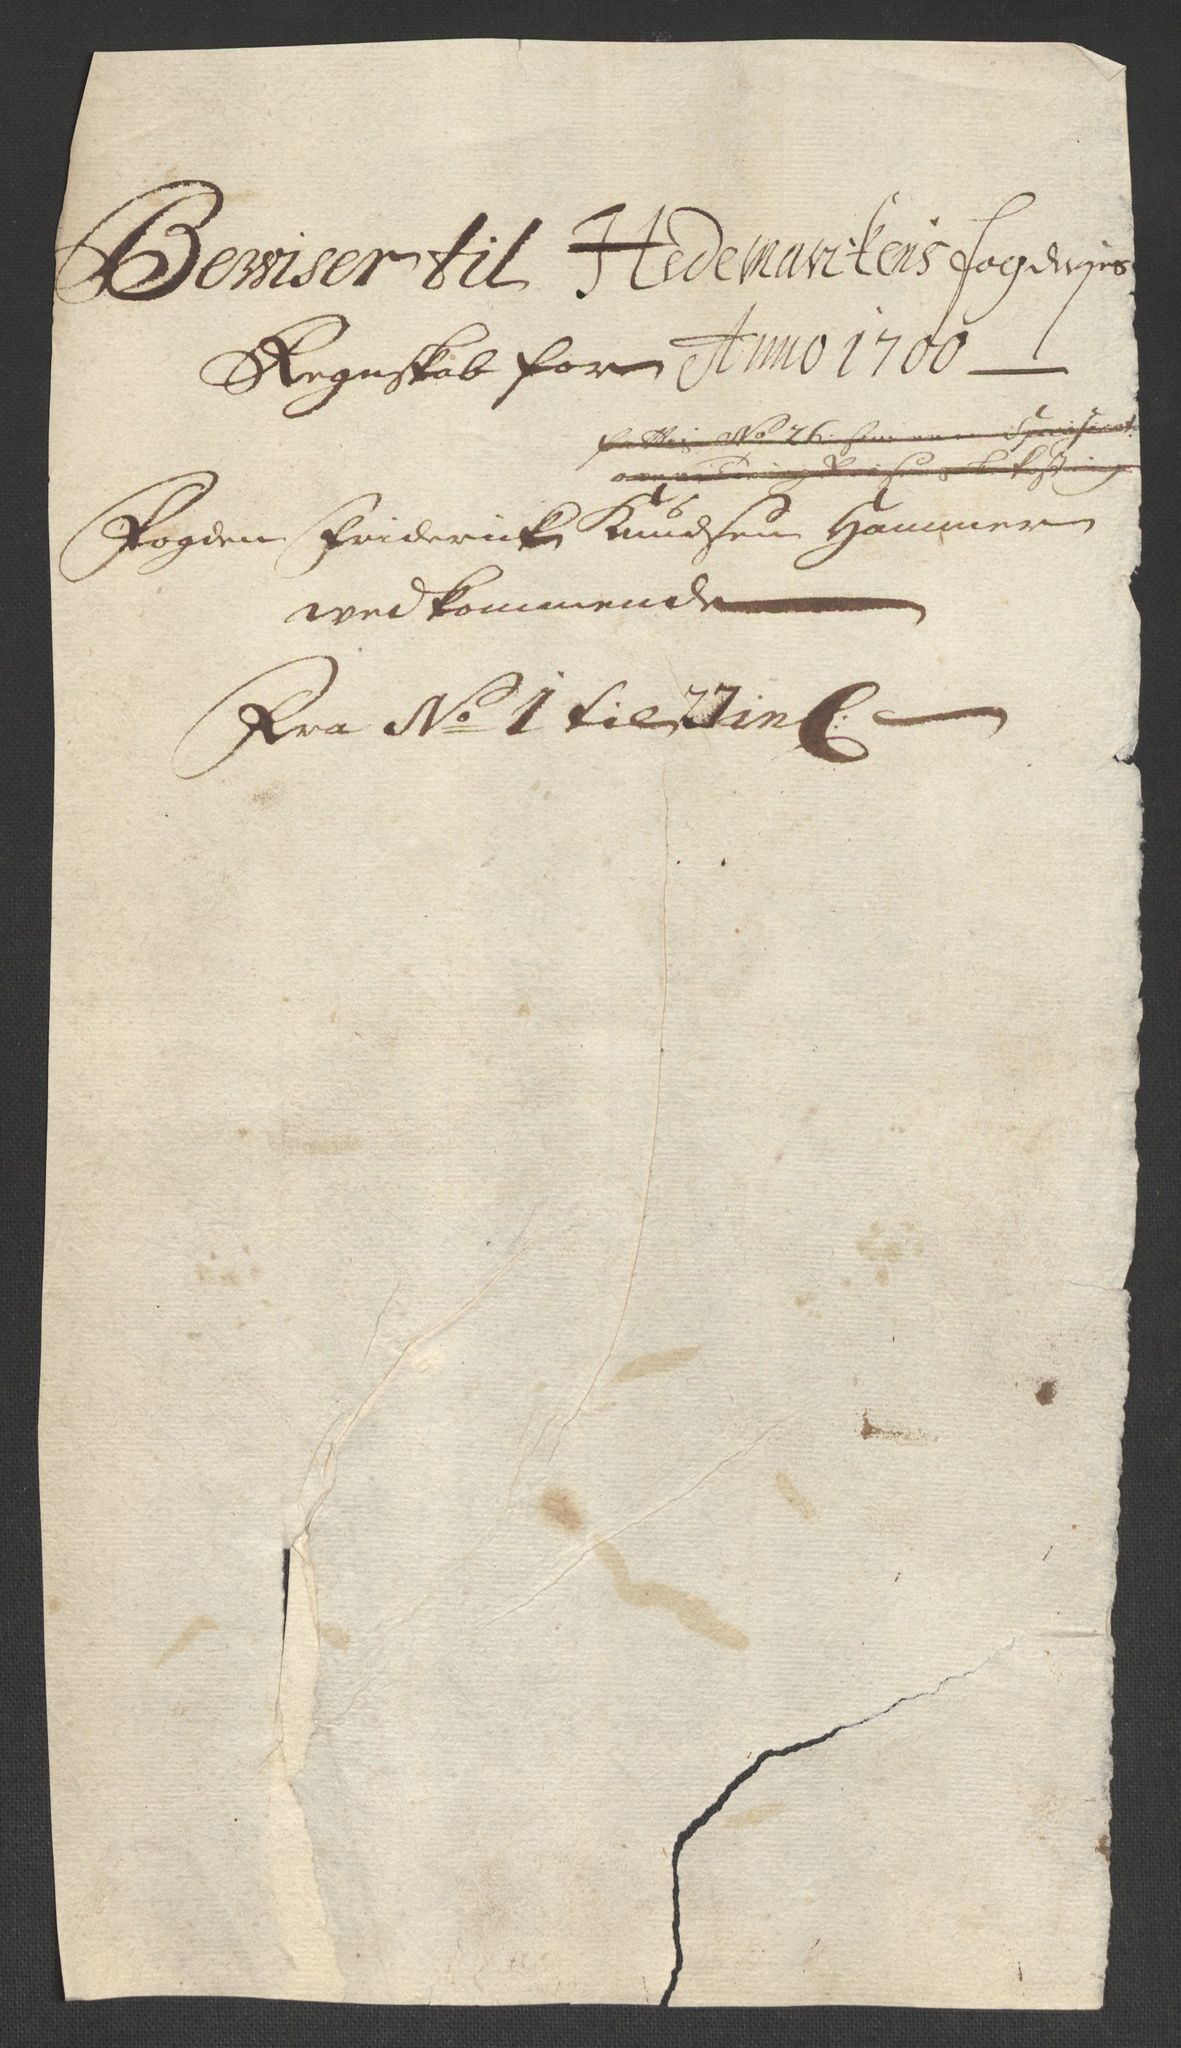 Bewiser til Hedemarckens fogderjes
Regnskab for Anno 1700
No 26.
Fogden Friderich Knudsen Hammer
wedkommende
Fra No 1 til 27 incl: